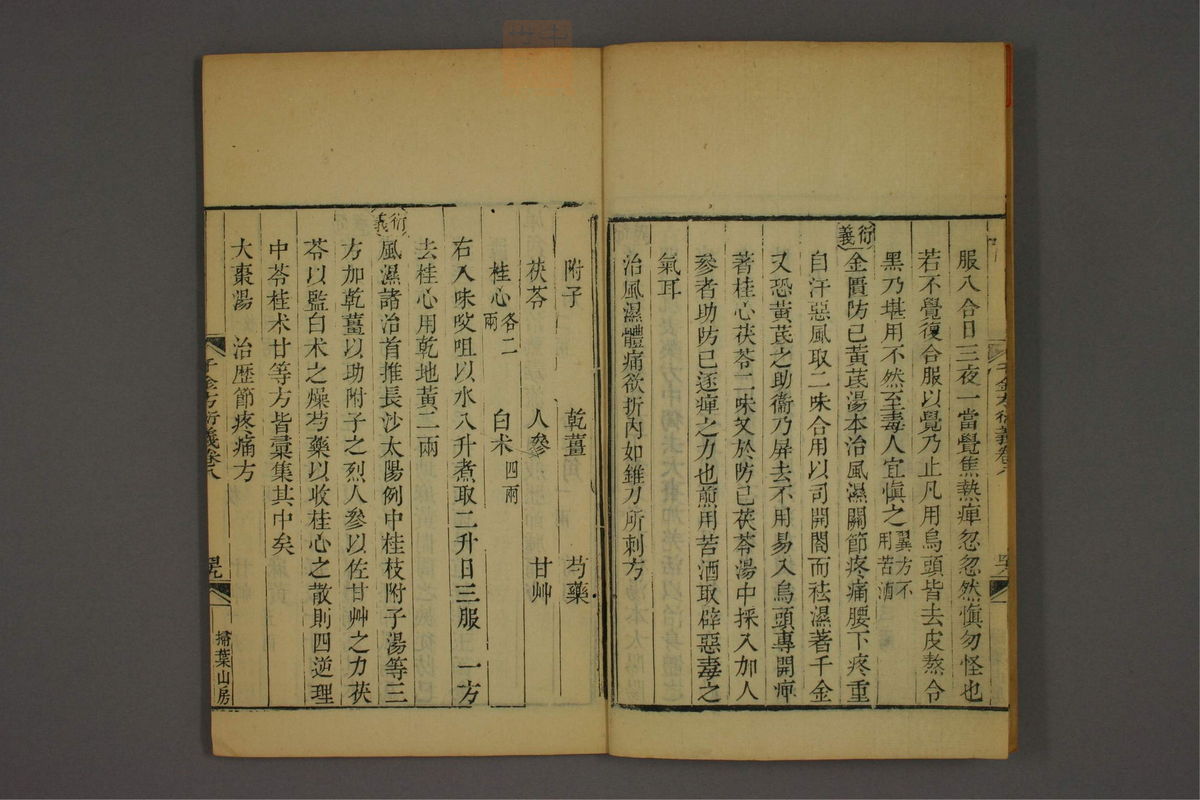 服八合日三夜一當覺焦熱痺忽忽然慎勿怪也
若不覺復合服以覺乃止凡用烏頭皆去皮熬令
黑乃堪用不然至毒人宜慎之翼方不用苦酒
衍義金匱防己黃芪湯本治風濕關節疼痛腰下疼重
自汗惡風取二味合用以司開閤而祛濕著千金
又恐黃芪之助衞乃屏去不用易入烏頭專開痺
著桂心茯苓二味又於防己茯苓湯中採入加人
參者助防己逐痺之力也煎用苦酒取辟惡毒之
氣耳
治風濕體痛欲折肉如錐刀所刺方
附子 乾薑 芍藥
茯苓 人參 甘艸
桂心各二兩 白朮四兩
右八味㕮咀以水八升煮取二升日三服 一方
去桂心用乾地黃二兩
衍義風濕諸治首推長沙太陽例中桂枝附子湯等三
方加乾薑以助附子之烈人參以佐甘艸之力茯
苓以監白朮之燥芍藥以收桂心之散則四逆理
中苓桂朮甘等方皆彙集其中矣
大棗湯 治歷節疼痛方
千金方衍義卷八
掃葉山房